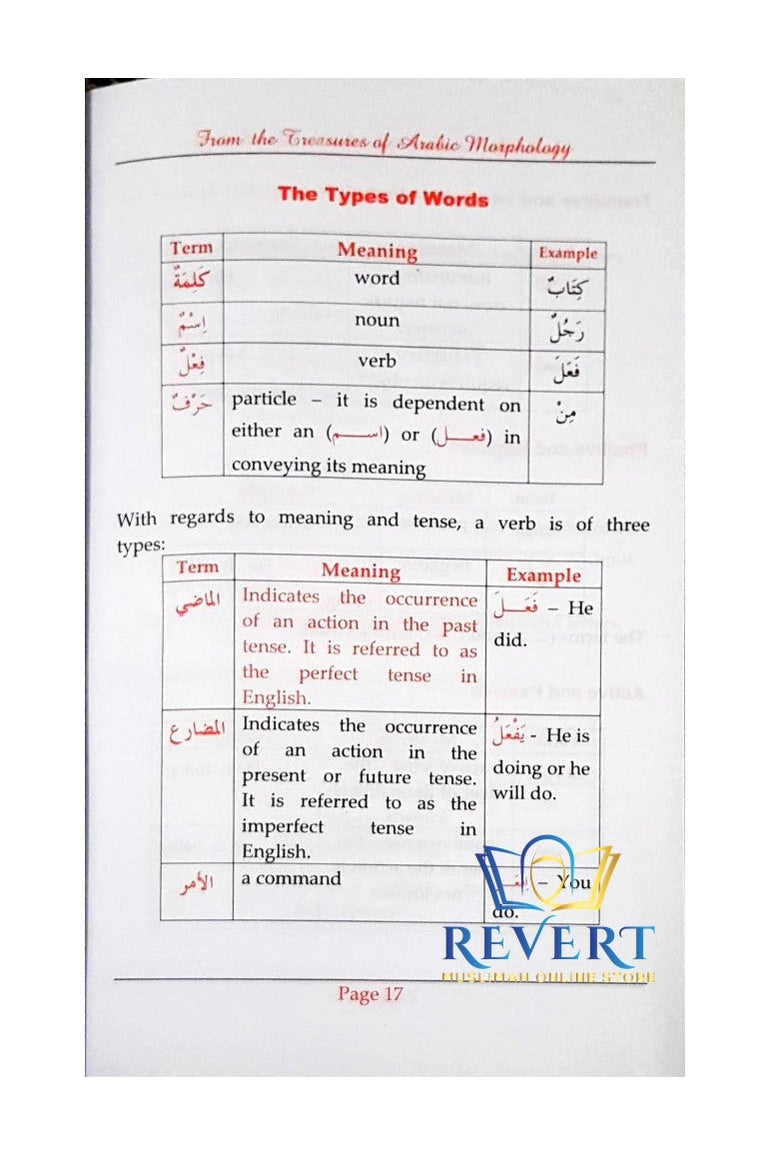 From the Treasures of Arabic Morphology
The Types of Words
Term Meaning Example
كَلِمَةٌ word كِتَابٌ
اِسْمٌ noun رَجُلٌ
فِعْلٌ verb فَعَلَ
حَرْفٌ particle – it is dependent on مِنْ
either an (اســـم) or (فعـــل) in
conveying its meaning
With regards to meaning and tense, a verb is of three
types:
Term Meaning Example
الماضي Indicates the occurrence فَعَـــلَ – He
of an action in the past did.
tense. It is referred to as
the perfect tense in
English.
المضارع Indicates the occurrence يَفْعَلُ - He is
of an action in the doing or he
present or future tense. will do.
It is referred to as the
imperfect tense in
English.
الأمر a command – You
do.
REVERT
MUSLIMAH ONLINE STORE
Page 17